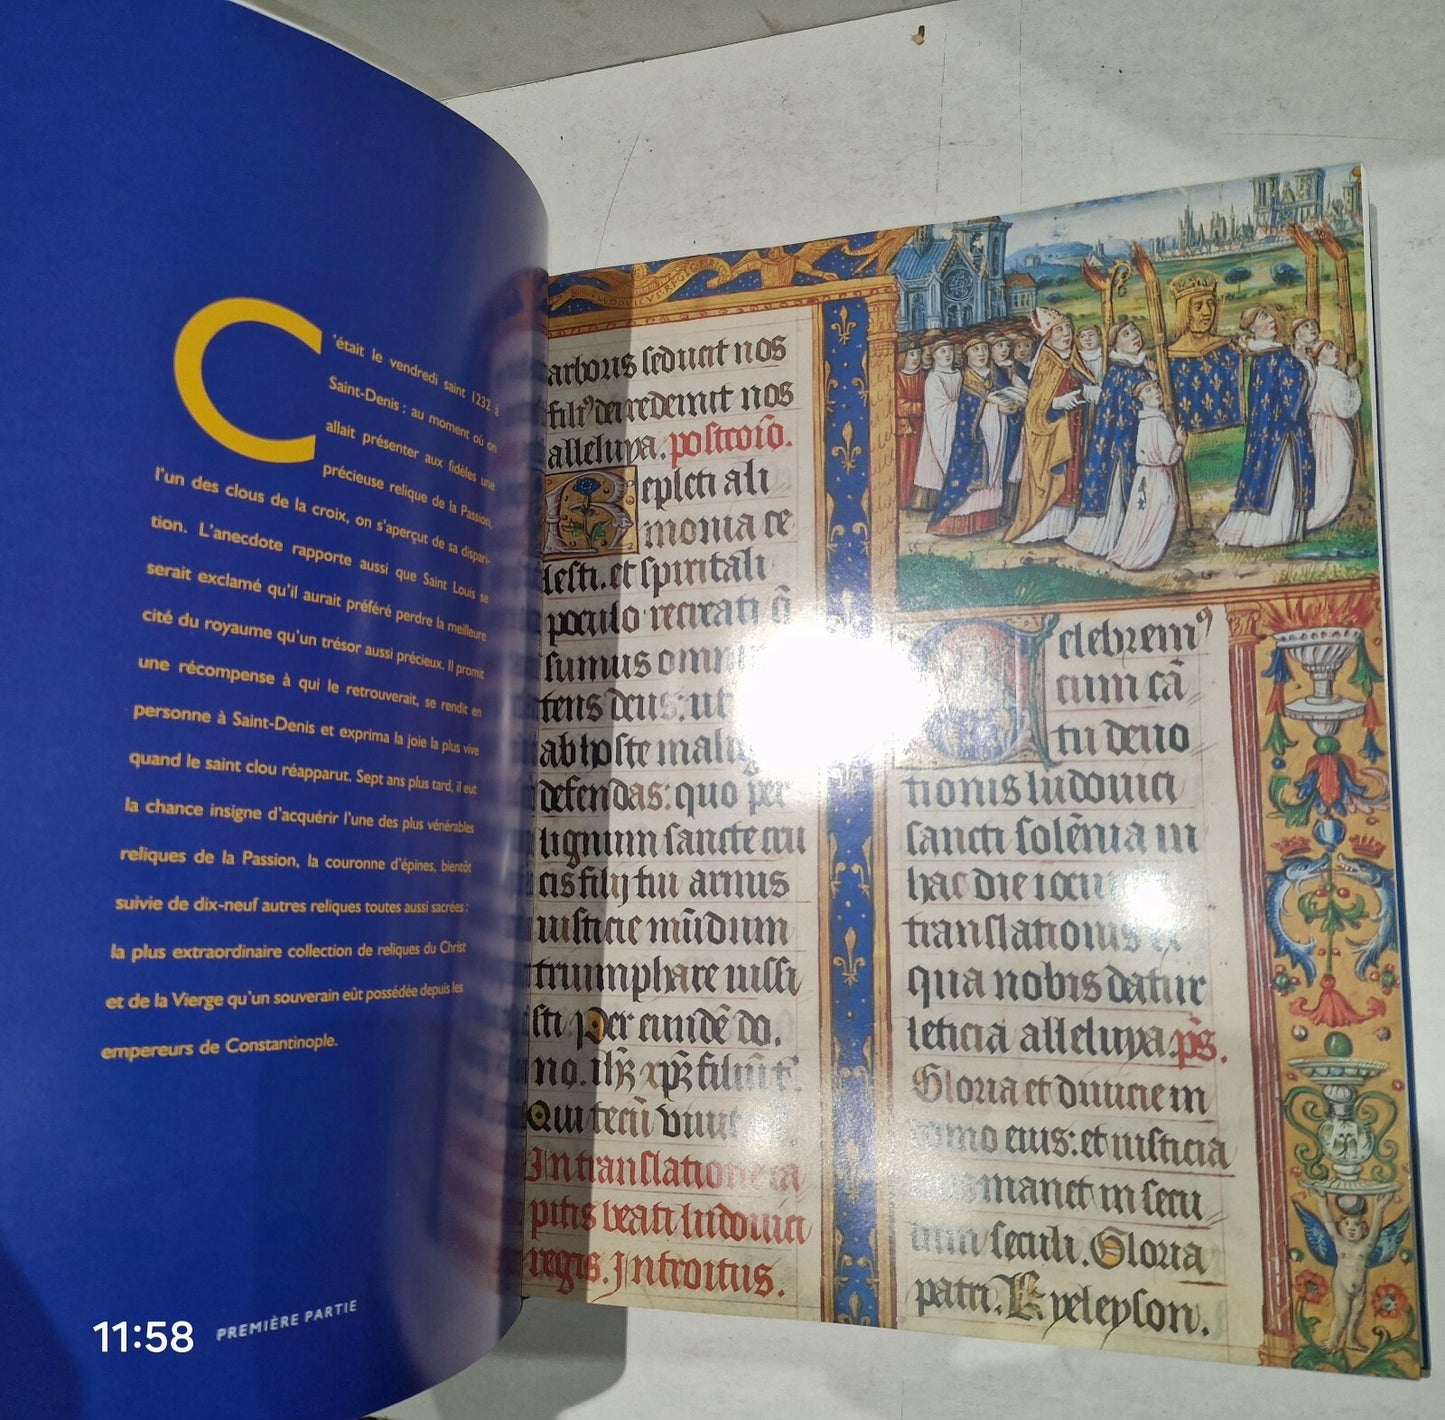 C'était le vendredi saint 1232 à
Saint-Denis : au moment où on
allait présenter aux fidèles une
précieuse relique de la Passion,
l'un des clous de la croix, on s'aperçut de sa dispari-
tion. L'anecdote rapporte aussi que Saint Louis se
serait exclamé qu'il aurait préféré perdre la meilleure
cité du royaume qu'un trésor aussi précieux. Il promit
une récompense à qui le retrouverait, se rendit en
personne à Saint-Denis et exprima la joie la plus vive
quand le saint clou réapparut. Sept ans plus tard, il eut
la chance insigne d'acquérir l'une des plus vénérables
reliques de la Passion, la couronne d'épines, bientôt
suivie de dix-neuf autres reliques toutes aussi sacrées :
la plus extraordinaire collection de reliques du Christ
et de la Vierge qu'un souverain eût possédée depuis les
empereurs de Constantinople.
11:58 PREMIÈRE PARTIE
arboris seducit nos
filiꝰ dei redemit nos
alleluya. postcoiō.
Repleti ali
monia ce
lesti. et spiritali
poculo recreati q̄
sumus omni
tens deus: ut
ab hoste malig
defendas: quo per
lignum sancte cru
cis filij tui armis
iusticie mūdum
triumphare iussi
sti. Per eundē do.
no. ihm̄ xpm̄ filiū t.
Qui tecū viuit
In translatione ca
pitis beati ludouici
regis. Introitus.
Celebremꝰ
cum cā
tu deuo
tionis ludouici
sancti solēnia in
hac die
translationis
qua nobis datur
leticia alleluya. p̄s.
Gloria et diuicie in
domo eius: et iusticia
manet in secu
seculi. Gloria
patri. Kyeleyson.